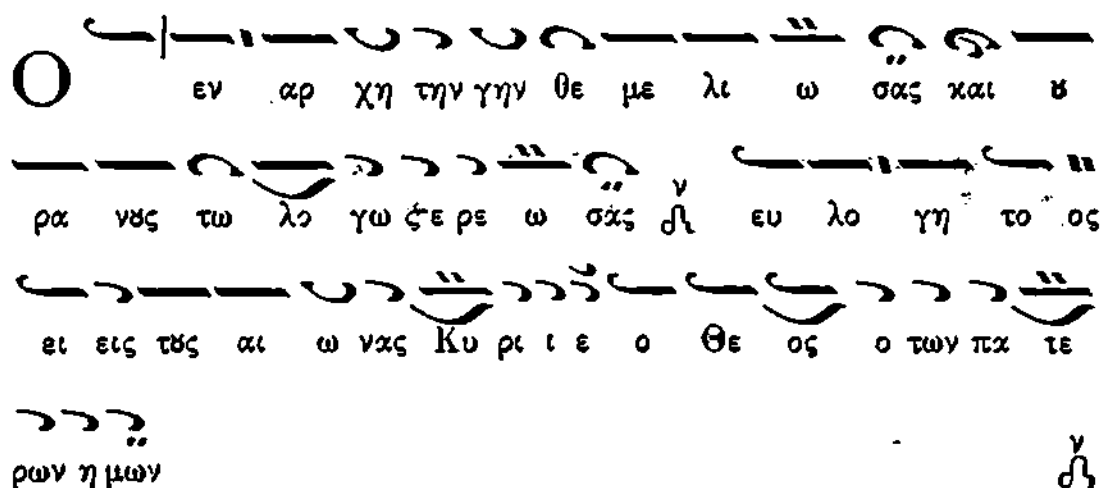 Ο εν αρ χη την γην θε με λι ω σας και ȣ
ρα νȣς τω λο γω ϛε ρε ω σάς ν ευ λο γη το ος
ει εις τȣς αι ω νας Κυ ρι ι ε ο Θε ος ο των πα τε
ρων η μων ν